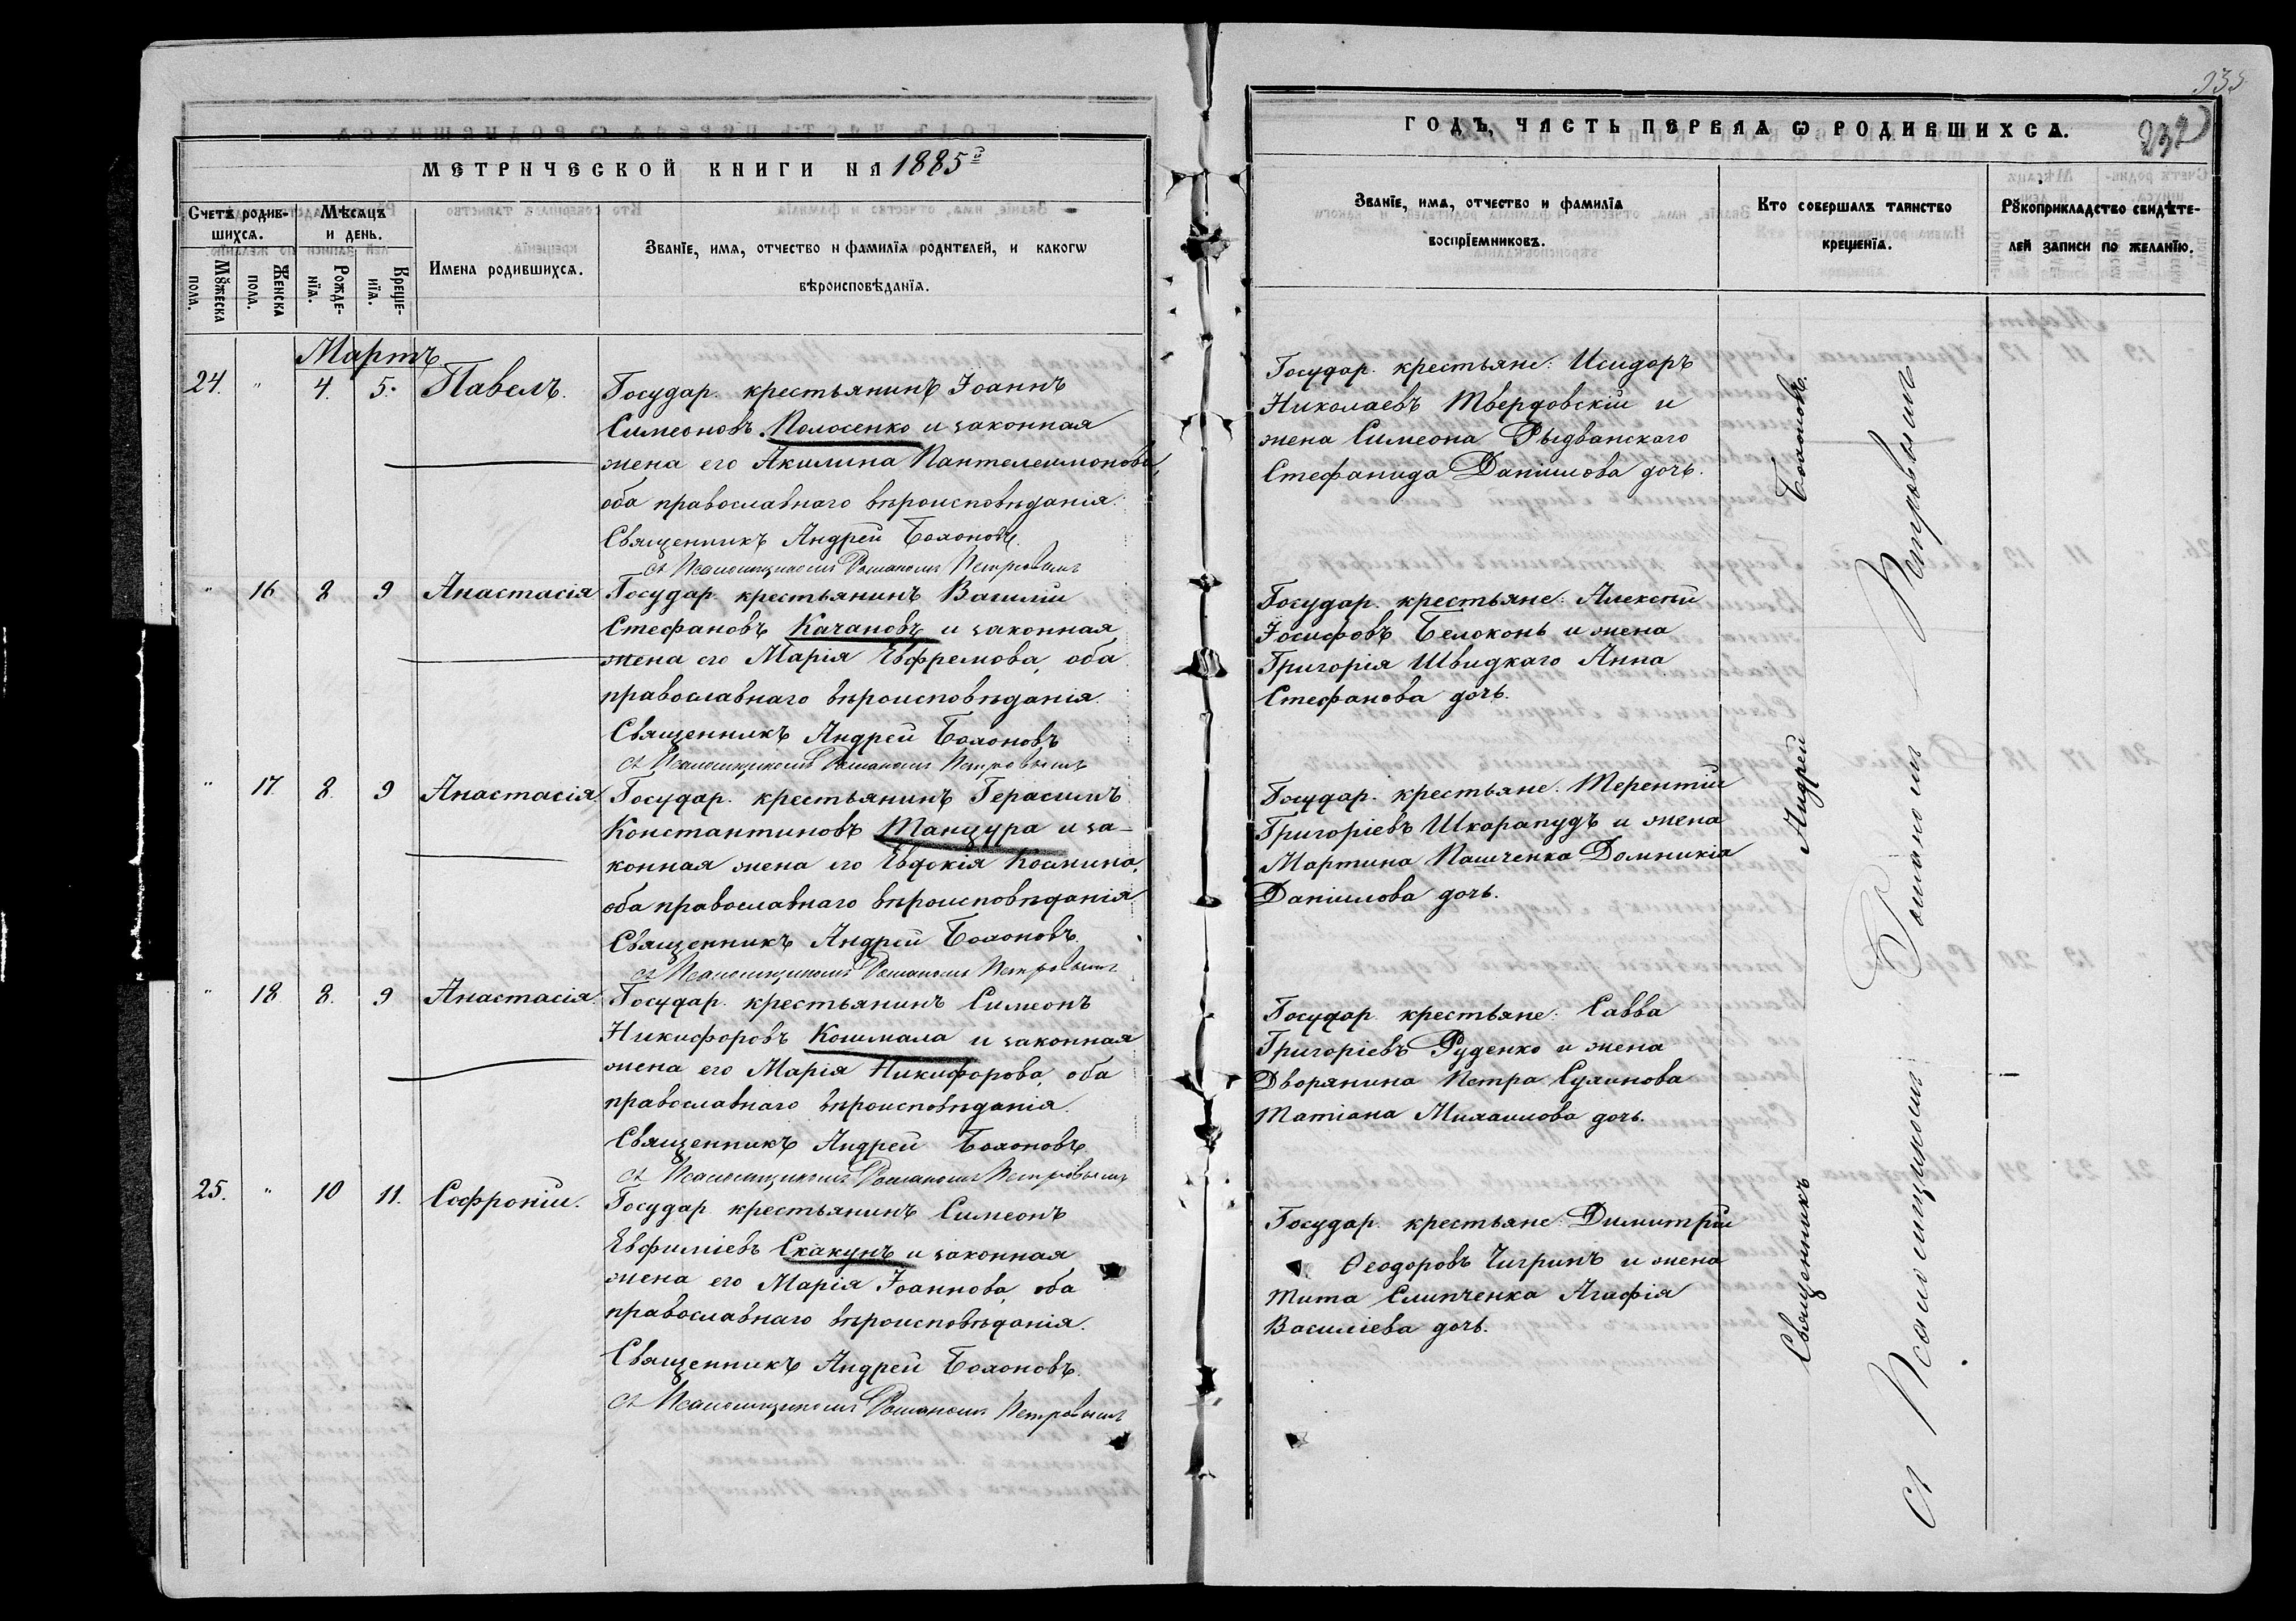 МЕТРИЧЕСКОЙ КНИГИ НА 1885й
Счетъ родив-
шихсѧ.
Мꙋжеска пола.
Женска пола.
Мѣсѧцъ
и день.
Рожде-
нїѧ.
Креще-
нїѧ.
Имена родившихсѧ.
Званїе, имѧ, отчество и фамилїѧ родителей, и какогѡ
вѣроисповѣданїѧ.
Мартъ
24. " 4. 5. Павелъ.
Государ. крестьянинъ Іоаннъ
Симеоновъ Колосенко и законная
жена его Акилина Пантелеимонова,
оба православнаго вѣроисповѣданія.
Священникъ Андрей
съ Псаломщикомъ Романомъ Петровымъ
" 16 8 9 Анастасія
Государ. крестьянинъ Василій
Стефановъ Качановъ и законная
жена его Марія Евфремова, оба
православнаго вѣроисповѣданія.
Священникъ Андрей
съ Псаломщикомъ Романомъ Петровымъ
" 17 8. 9 Анастасія
Государ. крестьянинъ Герасимъ
Константиновъ Танцура и за-
конная жена его Евдокія Космина,
оба православнаго вѣроисповѣданія.
Священникъ Андрей
съ Псаломщикомъ Романомъ Петровымъ
" 18 8. 9 Анастасія.
Государ. крестьянинъ Симеонъ
Никифоровъ Кошмала и законная
жена его Марія Никифорова, оба
православнаго вѣроисповѣданія.
Священникъ Андрей
съ Псаломщикомъ Романомъ Петровымъ
25. " 10 11. Софроній.
Государ. крестьянинъ Симеонъ
Евфиміевъ Скакунъ и законная
жена его Марія Іоаннова, оба
православнаго вѣроисповѣданія.
Священникъ Андрей
съ Псаломщикомъ Романомъ Петровымъ
232
ГОДЪ, ЧАСТЬ ПЕРВАѦ Ѡ РОДИВШИХСѦ.
Званїе, имѧ, отчество и фамилїѧ
воспрїемниковъ.
Кто совершалъ таинство
крещенїѧ.
Рꙋкоприкладство свидѣте-
лей записи по желанїю.
Государ. крестьяне: Исидоръ
Николаевъ Твердовскій и
жена Симеона Рыдванскаго
Стефанида Даніилова дочь.
Государ. крестьяне: Алексѣй
Іосифовъ Белоконь и жена
Григорія Швидкаго Анна
Стефанова дочь.
Государ. крестьяне: Терентій
Григоріевъ Шкарапудъ и жена
Мартина Пашченка Домникія
Даніилова дочь.
Государ. крестьяне: Савва
Григоріевъ Руденко и жена
Дворянина Петра
Татіана Михаилова дочь.
Государ. крестьяне: Димитрій
Ѳеодоровъ Чигринъ и жена
Тита Слипченка Агафія
Василіева дочь.
Священникъ Андрей
съ Псаломщикомъ Романомъ Петровымъ